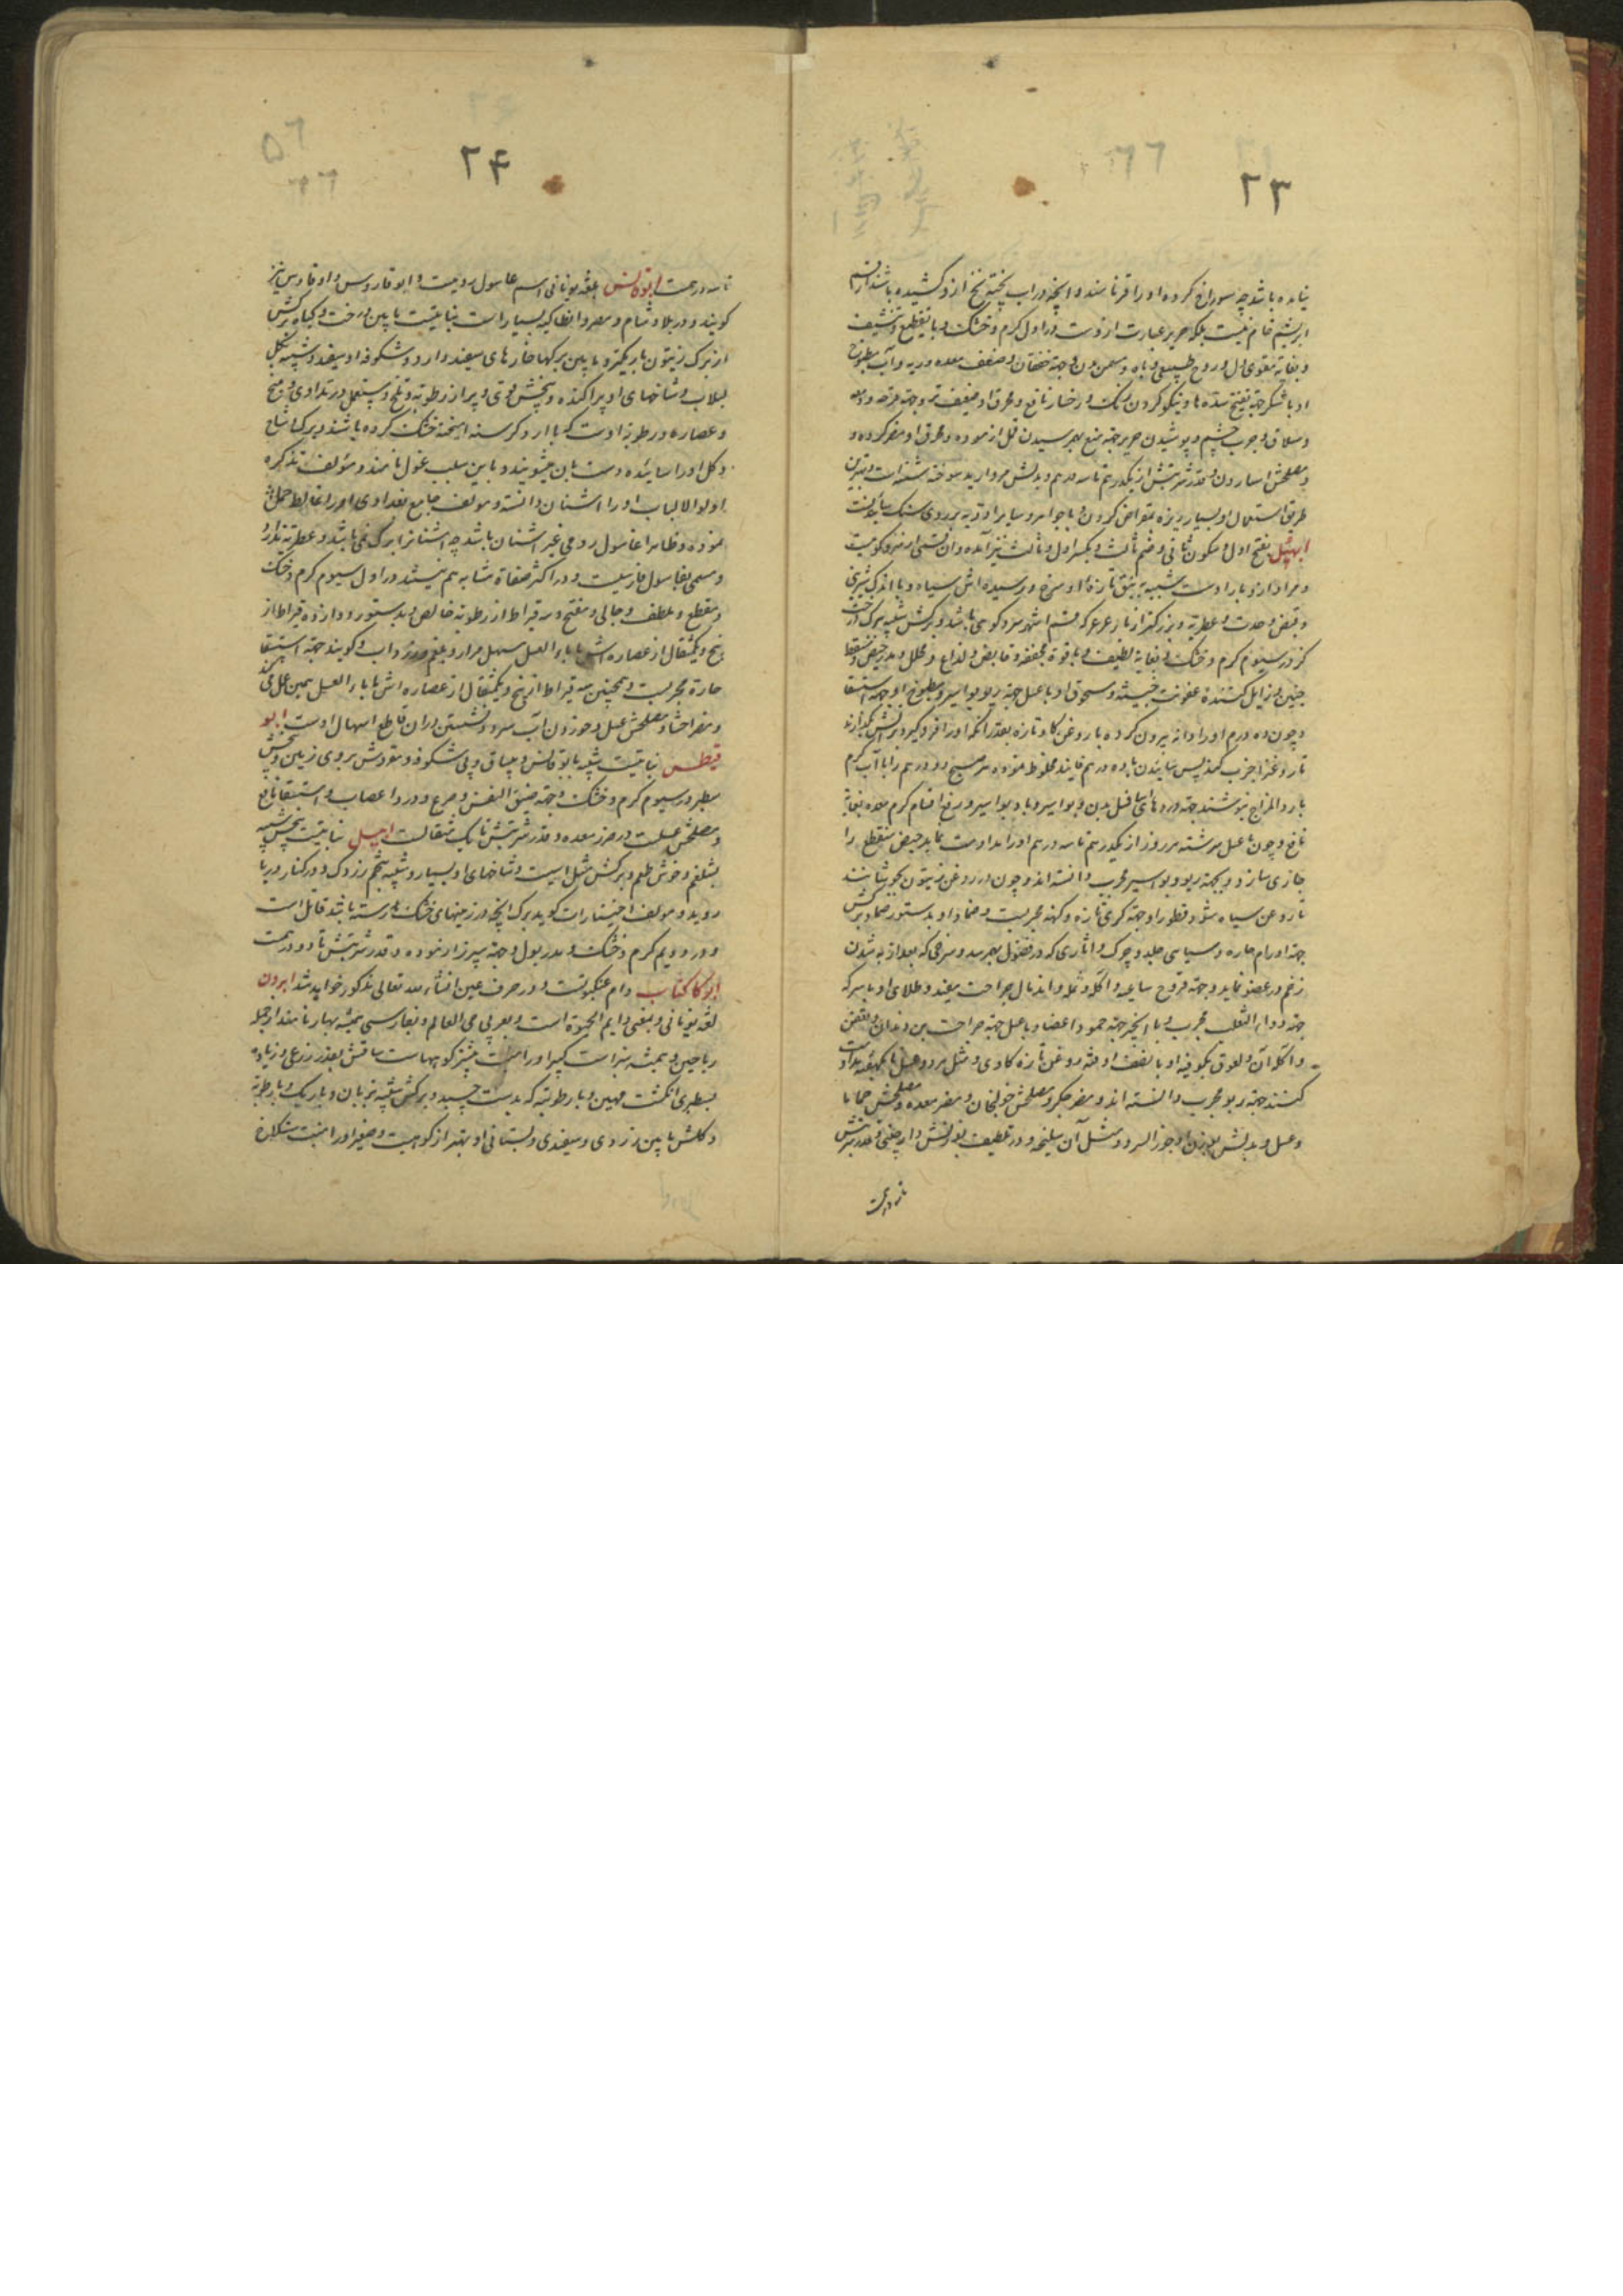 ۲۳
نیامده باشد چه سوراخ کرده او را قز نامند و آنچه در آب پخته نخ ازو کشیده باشند از قسم
ابریشم خام نیست بلکه حریر عبارت ازوست در اول گرم و خشک و با تقطیع و تنشیف
و بغایت مقوی دل و روح طبیعی و باه و مسمن بدن و جهة خفقان و ضعف معده و ریه و آب مطبوخ
او با شکر جهة تفتیح سده ها و نیکو کردن رنک رخسار نافع و محرق او ضعیف تر و جهة قرحه و دمعه
و سلاق و جرب چشم و پوشیدن حریر جهة منع بهم رسیدن قمل ازموده و محرق او مضر کرده و
مصلحش اسارون و قدر شربتش از یکدرهم تا سه درهم و بدلش مروارید سوخته شسته است و بهترین
طریق استعمال او بسیار ریزه بمقراض کردن و با جواهر و سایر ادویه بر روی سنک سائیدنست
ابهل بفتح اول و سکون ثانی و ضم ثالث و بکسر اول و ثالث نیز آمده و آن قسمی از سرو کوهیست
و مراد از و بار اوست شبیه به نبق تازه او سرخ و رسیده اش سیاه و با اندک شیرینی
و قبض و حدت و عطریة و بزرکتر از بار عرعر که قسم اشهر سرو کوهی باشد و برکش شبیه ببرک درخت
کز در سیوم گرم و خشک و بغایة لطیف و با قوة مجففه و قابض و لذاع و محلل و مدر حیض و مسقط
جنین و زایل کننده عفونت خبیثه و مسحوق او با عسل جهة ربو و بواسیر و مطبوخ او جهة استسقا
و چون ده درم او را دانه بیرون کرده با روغن کاو تازه بقدر آنکه او را فرو گیرد بر اتش گذارند
تا روغن را جذب کند پس سائیده با ده درهم فانیذ مخلوط نموده هر صبح دو درهم را با آب گرم
بارد المزاج بنوشند جهة دردهای اسافل بدن و بواسیر و باد بواسیر و رفع اقسام کرم معده بغایة
نافع و چون با عسل سرشته هر روز از یکدرهم تا سه درهم او را مداومت نمایند حیض منقطع را
جاری سازد و بجهة ربو و بواسیر مجرب دانسته اند و چون در روغن زیتون بجوشانند
تا روغن سیاه شود قطور او جهة کری تازه و کهنه مجربست و ضماد او بدستور ضماد برکش
جهة اورام حاره و سیاهی جلد و چرک و اثاری که در فضول بهم رسد و سرخی که بعد از به شدن
زخم در عضو نماید و جهة قروح ساعیه و آکله و نمله و اندمال جراحت مفید و طلای او با سرکه
جهة داء الثعلب مجرب و با انجیر جهة جمود اعضا و با عسل جهة جراحت بن دندان و تعفن
و اکله آن و لعوق یکوقیه او با نصف اوقیه روغن تازه کاوی و مثل هر دو عسل
کنند جهة ربو مجرب دانسته اند و مضر جگر و مصلحش خولنجان و مضر معده و مصلحش حماما
و عسل و بدلش بوزن او جوز السرو و مثل آن سلیخه و در تلطیف بوزنش دارچینی و قدر شربتش
تا سه درهمست
۲۴
تا سه درهمست ابوقانس بلغة یونانی اسم غاسول رومیست و ابو قاروس و اوقادس نیز
کویند و در بلاد شام و مصر و انطاکیه بسیار است نباتیست ما بین درخت و کیاه برکش
از برک زیتون باریکتر و ما بین برکها خارهای سفید دارد و شکوفه او سفید و شبیه بکل
لبلاب و شاخهای او پراکنده و بیخش قوی و پر از رطوبة و تلخ و مستعمل در تداوی بیخ
و عصاره و رطوبة اوست که با آرد کرسنه امیخته خشک کرده باشند و برک و شاخ
و کل او را سائیده دست بان میشویند و باین سبب غول نامند و مؤلف تذکره
اولو الالباب او را اشنان دانسته و مولف جامع بغدادی او را تغلیط
نموده و ظاهرا غاسول رومی غیر اشنان باشد چه اشنانرا برک نمی باشد و عطریة ندارد
و مسمی بغاسول فارسیست و در اکثر صفاة مشابه هم نیستند در اول سیوم گرم و خشک
و مقطع و ملطف و جالی و مفتح و سه قیراط از رطوبة خالص و بدستور دوازده قیراط از
بیخ و یکمثقال از عصاره اش با ماء العسل مسهل مرار و بلغم و زرداب و کویند جهة استسقا
حارة مجربست و همچنین سه قیراط از بیخ و یکمثقال از عصاره اش با ماء العسل همین عمل کند
و مضر احشا و مصلحش عسل و خوردن آب سرد و نشستن در آن قاطع اسهال اوست ابو
قیطس نباتیست شبیه بابوقانس و بیساق و بی شکوفه و مفروش بر روی زمین و بیخش
سطبر در سیوم گرم و خشک و جهة ضیق النفس و صرع و درد اعصاب و استسقا نافع
و مصلحش عسلست در ضرر معده و قدر شربتش تا یک مثقالست ابهل نباتیست بیخش شبیه
بشلغم و خوش طعم و برکش مثل است و شاخهای او بسیار و شبیه بتخم زردک و در کنار دریا
روید و مولف اختیارات کوید برک انچه در زمینهای خشک رسته باشد قاتل است
و در دویم گرم و خشک و مدر بول و جهة سپرز ازموده و قدر شربتش تا دو درهمست
ابو کاکتاب دام عنکبوتست و در حرف عین انشاء الله تعالی مذکور خواهد شد ابرون
لغة یونانی و بمعنی دایم الحیوة است و بعربی حی العالم و بفارسی همیشه بهار نامند از جمله
ریاحین و همیشه سبز است کبیر او را منبت بیشتر کوهپایهاست ساقش بقدر ذرعی و زیاده
بسطبری انکشت مهین و با رطوبتی که بدست چسبد و برکش شبیه بزبان و باریک و با رطوبة
و کلش ما بین زردی و سفیدی و بستانی او بهتر از کوهیست و صغیر او را منبت سنکلاخ